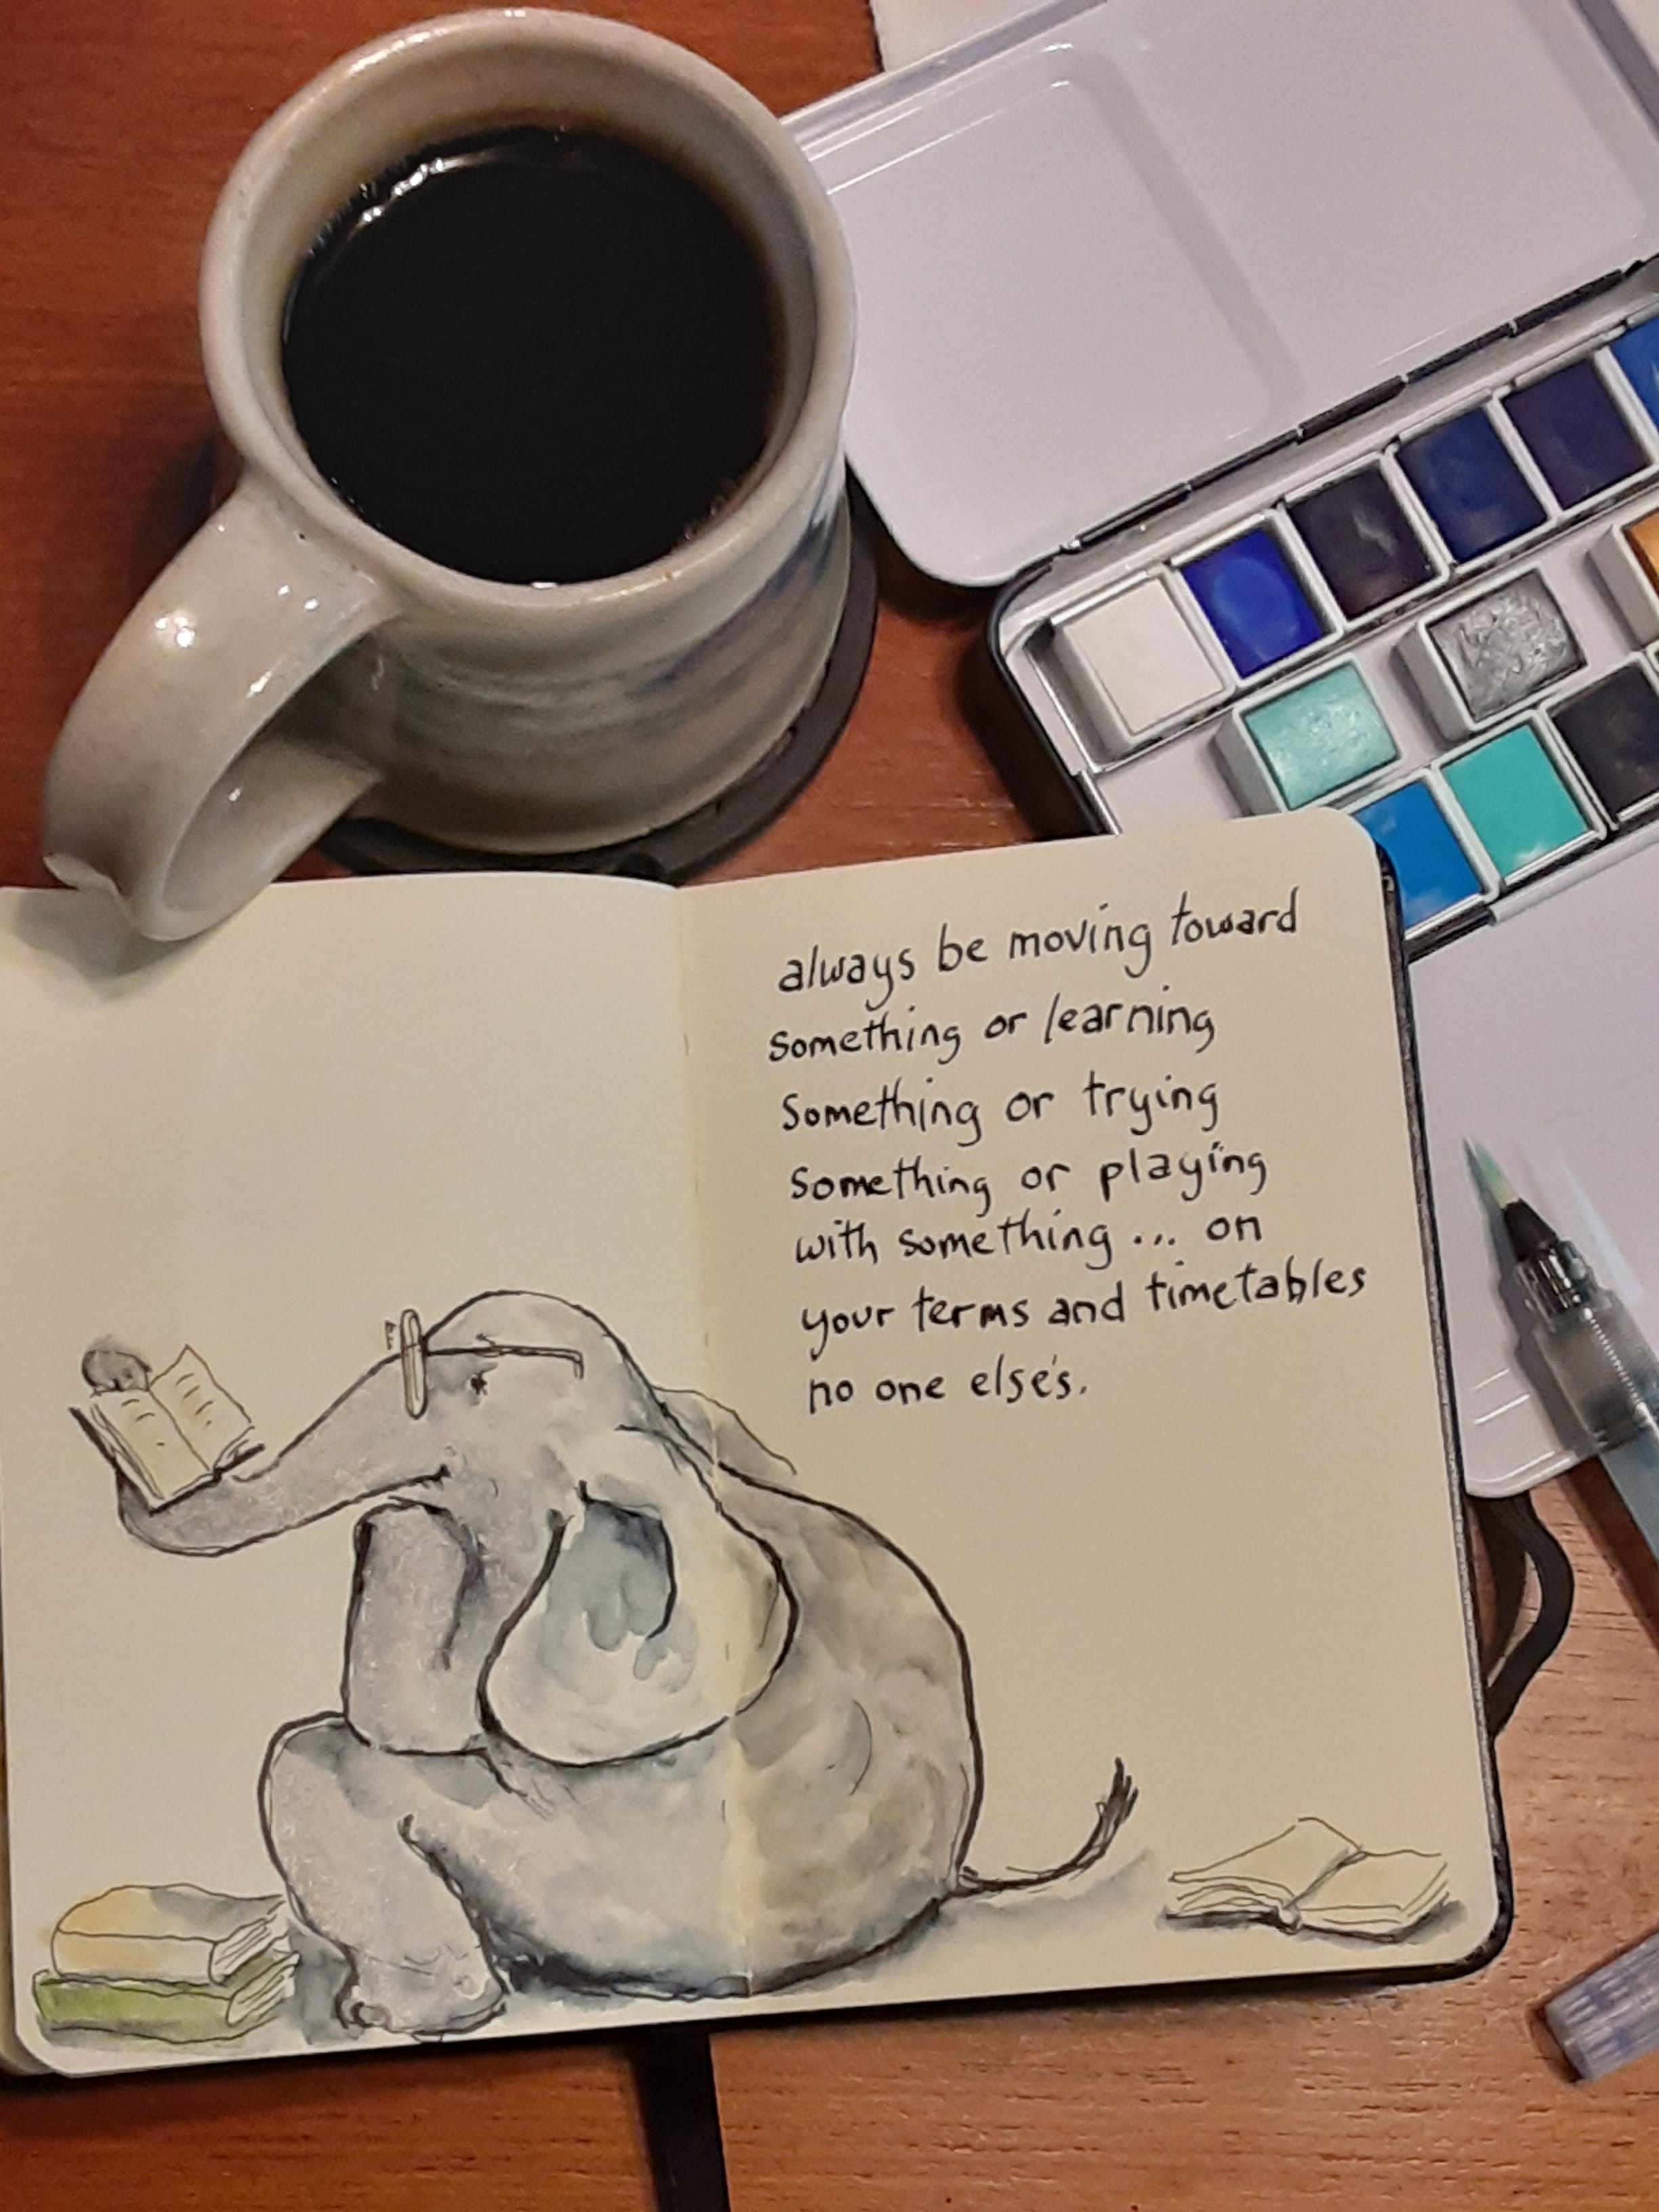 always be moving toward
something or learning
something or trying
something or playing
with something... on
your terms and timetables
no one else's.